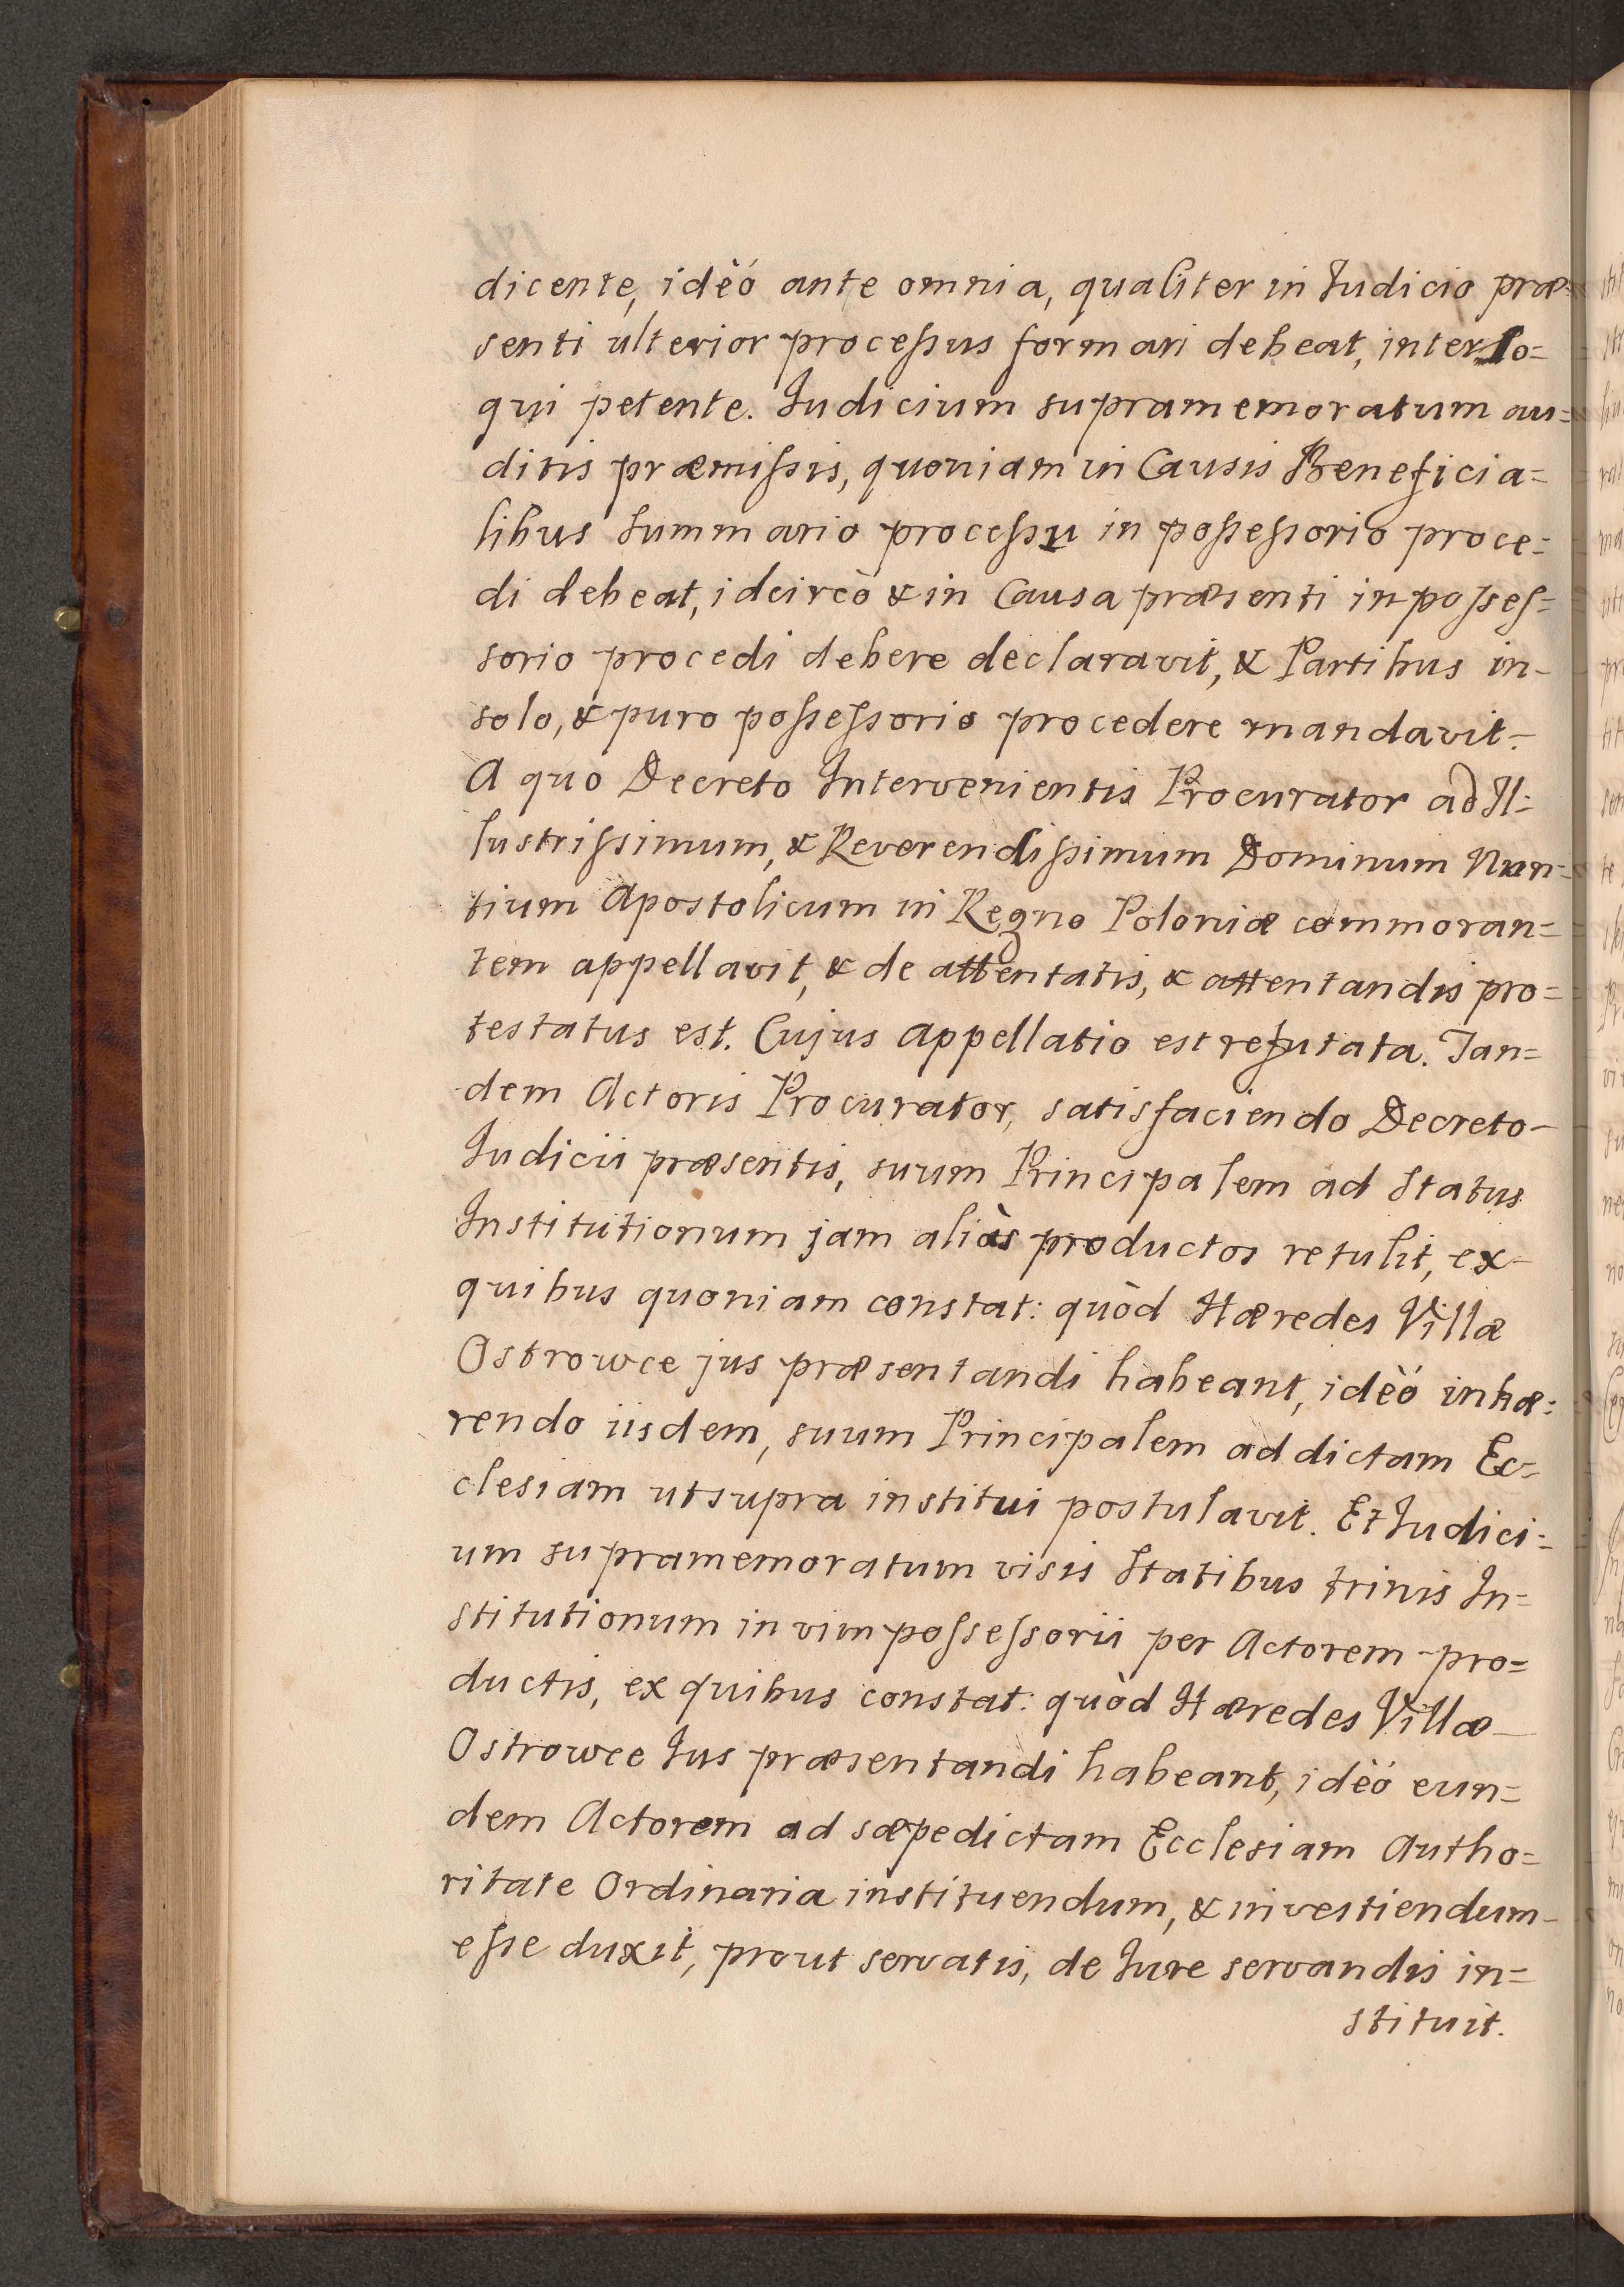 dicente, idèó ante omnia, qualiter in Judicio præ=
senti ulterior proceſsus formari debeat, interlo=
qui petente. Judicium supramemoratum au=
ditis præmiſsis, quoniam in Causis Beneficia=
libus Summario proceſsu in poſseſsorio proce=
di debeat, idcircò & in Causa præsenti in poſseſ=
sorio procedi debere declaravit, & Partibus in-
solo, & puro poſseſsorio procedere mandavit.
A quo Decreto Intervenientis Procurator ad Il=
lustriſsimum, & Reverendiſsimum Dominum Nun=
tium Apostolicum in Regno Poloniæ commoran=
tem appellavit, & de attentatis, & attentandis pro=
testatus est. Cujus appellatio est refutata. Tan=
dem Actoris Procurator, satisfaciendo Decreto-
Judicii præsentis, suum Principalem ad Status
Institutionum jam aliàs productos retulit, ex-
quibus quoniam constat: quòd Hæredes Villæ
Ostrowce jus præsentandi habeant, idèó inhæ=
rendo iisdem, suum Principalem ad dictam Ec=
clesiam utsupra institui postulavit. Et Judici=
um supramemoratum visis Statibus trinis In=
stitutionum in vim poſseſsorii per Actorem pro=
ductis, ex quibus constat: quòd Hæredes Villæ-
Ostrowce Jus præsentandi habeant, idèó eun=
dem Actorem ad sæpedictam Ecclesiam Autho=
ritate Ordinaria instituendum, & investiendum-
eſse duxit, prout servatis, de Jure servandis in=
stituit.